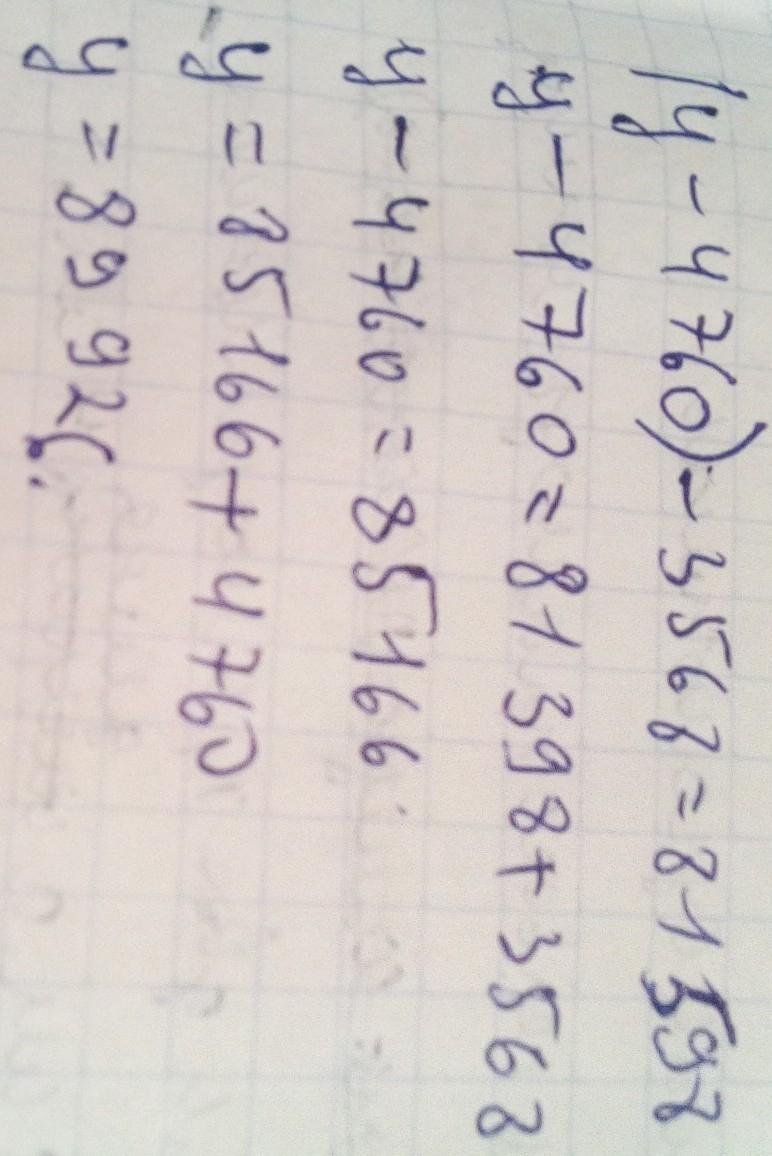 (y - 4760) - 3568 = 81598
y - 4760 = 81398 + 3568
y - 4760 = 85166
y = 85166 + 4760
y = 89926.